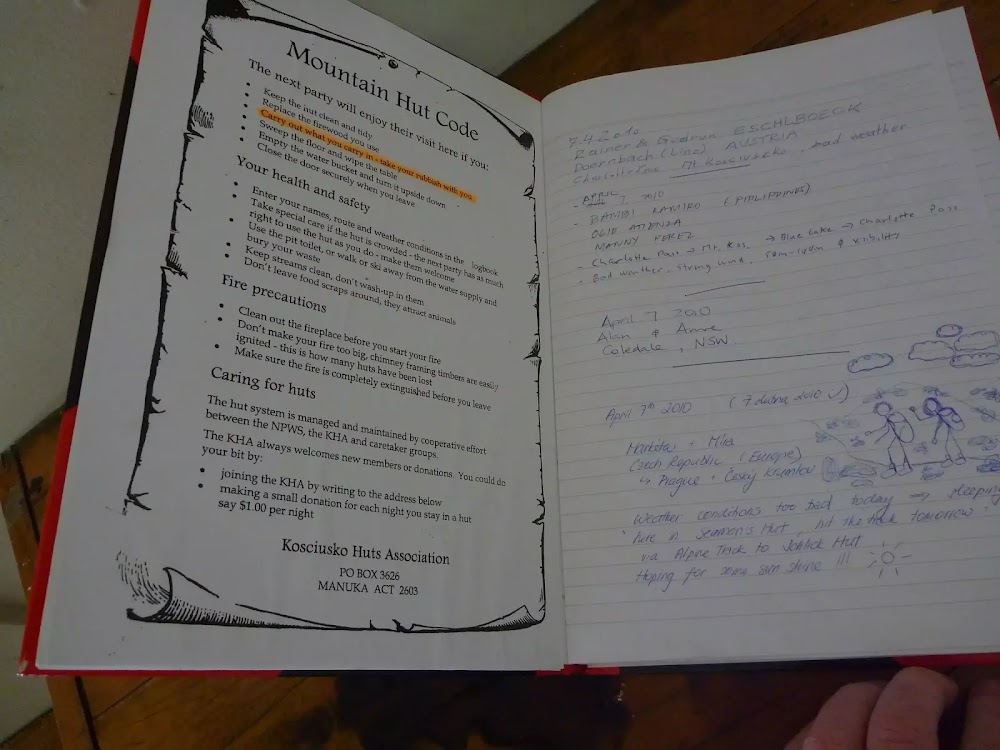 Mountain Hut Code
The next party will enjoy their visit here if you:
• Keep the hut clean and tidy
• Replace the firewood you use
• Carry out what you carry in - take your rubbish with you
• Sweep the floor and wipe the table
• Empty the water bucket and turn it upside down
• Close the door securely when you leave
Your health and safety
• Enter your names, route and weather conditions in the logbook
• Take special care if the hut is crowded - the next party has as much
right to use the hut as you do - make them welcome
• Use the pit toilet, or walk or ski away from the water supply and
bury your waste
• Keep streams clean, don't wash-up in them
• Don't leave food scraps around, they attract animals
Fire precautions
• Clean out the fireplace before you start your fire
• Don't make your fire too big, chimney framing timbers are easily
ignited - this is how many huts have been lost
• Make sure the fire is completely extinguished before you leave
Caring for huts
The hut system is managed and maintained by cooperative effort
between the NPWS, the KHA and caretaker groups.
The KHA always welcomes new members or donations. You could do
your bit by:
• joining the KHA by writing to the address below
• making a small donation for each night you stay in a hut
say $1.00 per night
Kosciusko Huts Association
PO BOX 3626
MANUKA ACT 2603
Rainer & Gudrun ESCHLBOECK
Doornbach (Linz) AUSTRIA
Mt. Kosciuszko, bad weather
- APRIL 7, 2010
(PHILIPPINES)
MANNY PEREZ
- Charlotte Pass → Mt. Kos. → Blue Lake → Charlotte Pass
- Bad weather, strong wind,
April 7, 2010
Alan & Anne
Coledale, NSW.
April 7th 2010 (7 dubna 2010 ✓)
Markéta + Míra
Czech Republic (Europe)
↳ Prague + Český Krumlov
Weather conditions too bad today → sleeping
here in Seaman's Hut, hit the track tomorrow
via Alpine Track to
Hoping for some sun shine !!!